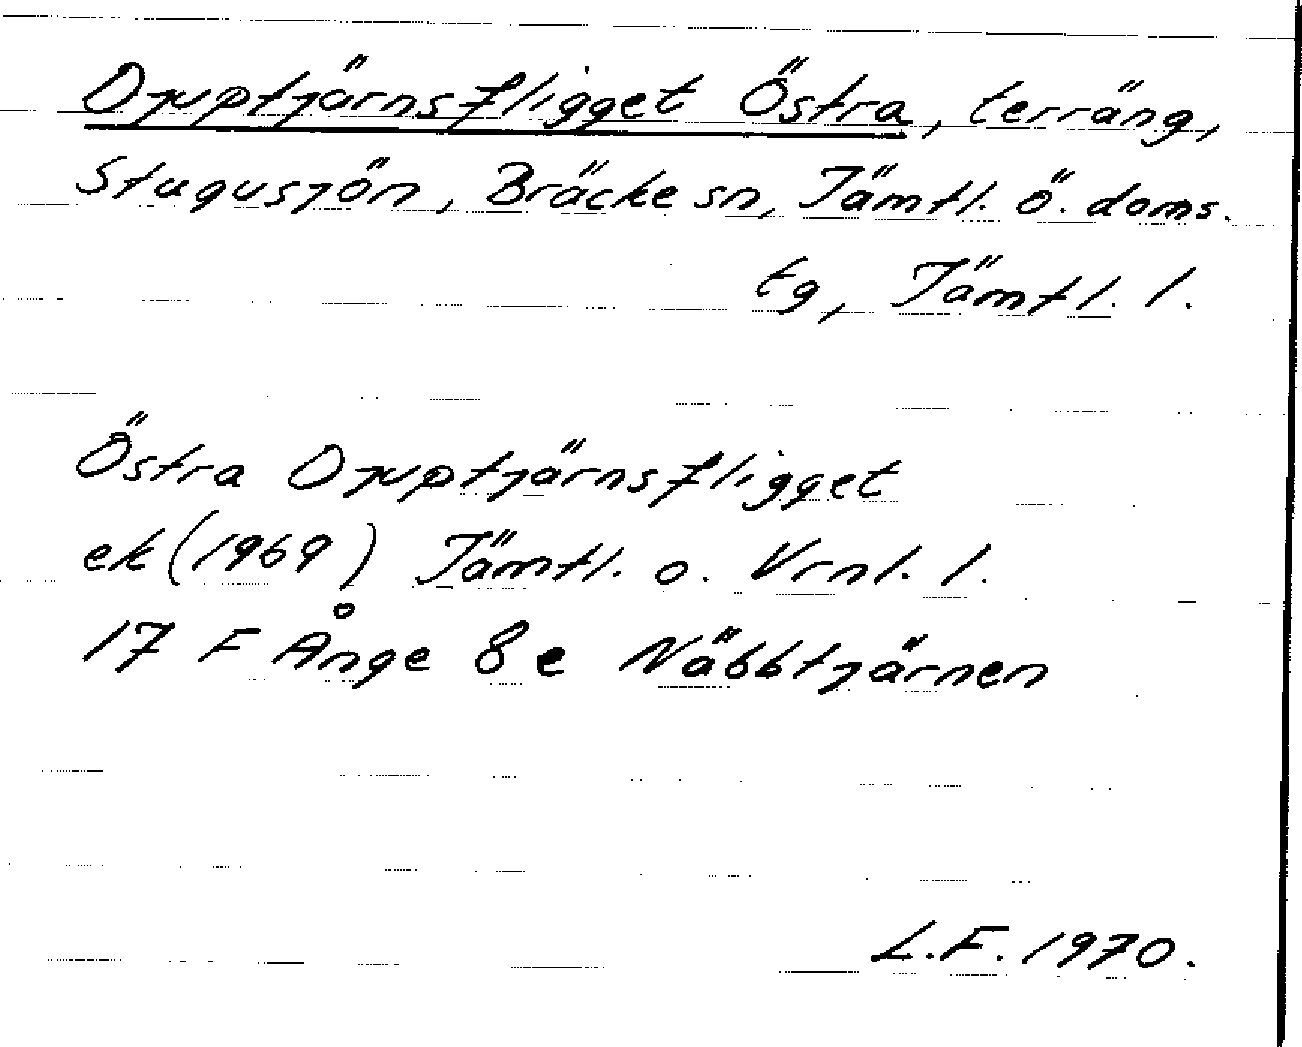 Djuptjärnsfligget Östra, terräng,
Stugusjön, Bräcke sn, Jämtl. ö. doms.
tg, Jämtl. l.
Östra Djuptjärnsfligget
ek (1969) Jämtl. o. Vrnl. l.
17 F Ånge 8 e Näbbtjärnen
L.F. 1970.